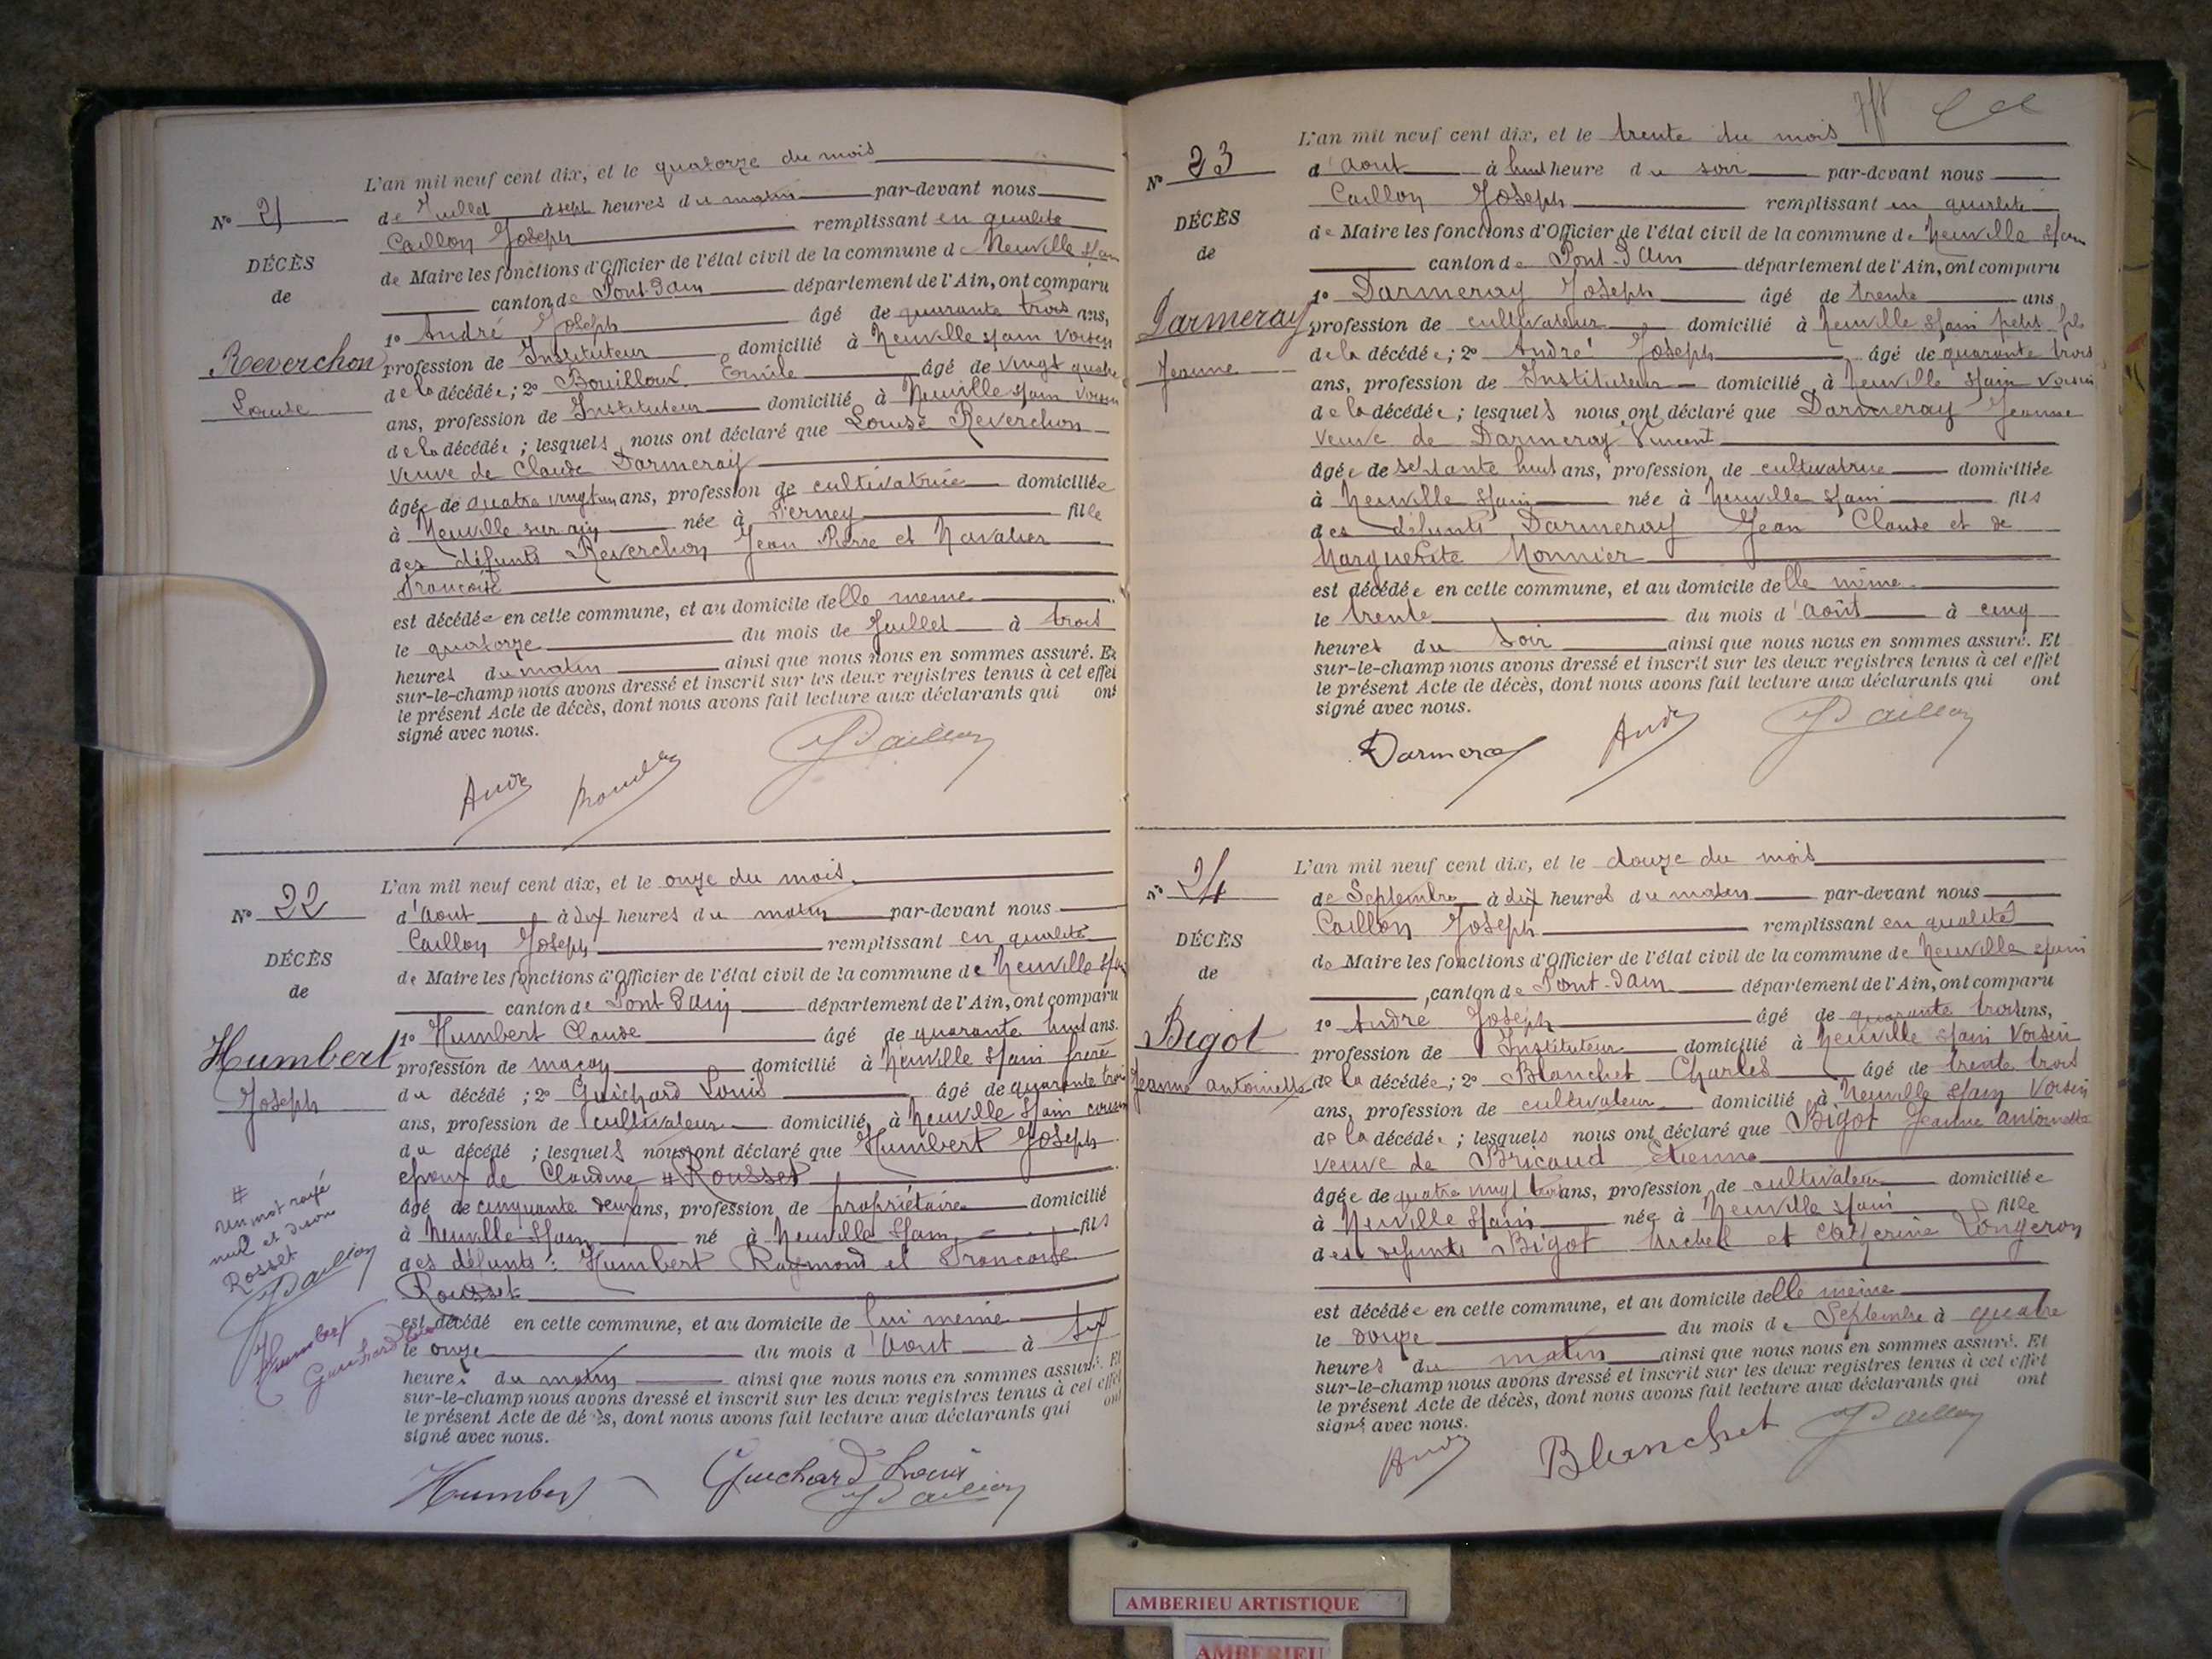 L'an mil neuf cent dix, et le quatorze du mois
N° 21
de Juillet à sept heures du matin par-devant nous
Caillon Joseph remplissant en qualité
DÉCÈS
de Maire les fonctions d'Officier de l'état civil de la commune de Neuville s/ain
de
canton de Pont-d'ain département de l'Ain, ont comparu
1° André Joseph âgé de quarante trois ans,
Reverchon
profession de Instituteur domicilié à Neuville s/ain voisin
de la décédée; 2° Bouilloux Emile âgé de vingt quatre
Louise
ans, profession de Instituteur domicilié à Neuville s/ain voisin
de la décédée; lesquels nous ont déclaré que Louise Reverchon
veuve de Claude Darmeray
âgée de quatre vingt un ans, profession de cultivatrice domiciliée
à Neuville sur ain née à fille
des défunts Reverchon Jean Pierre et Navatier
Françoise
est décédée en cette commune, et au domicile de lle meme
le quatorze du mois de Juillet à trois
heures du matin ainsi que nous nous en sommes assuré. Et
sur-le-champ nous avons dressé et inscrit sur les deux registres tenus à cet effet
le présent Acte de décès, dont nous avons fait lecture aux déclarants qui ont
signé avec nous.
André
JCaillon
L'an mil neuf cent dix, et le onze du mois
N° 22
d'Aout à dix heures du matin par-devant nous
Caillon Joseph remplissant en qualité
DÉCÈS
de Maire les fonctions d'Officier de l'état civil de la commune de Neuville s/ain
de
canton de Pont d'ain département de l'Ain, ont comparu
1° Humbert Claude âgé de quarante huit ans.
Humbert
profession de maçon domicilié à Neuville s/ain frère
Joseph
du décédé; 2° Guichard Louis âgé de quarante trois
ans, profession de cultivateur domicilié à Neuville s/ain cousin
du décédé; lesquels nous ont déclaré que Humbert Joseph
epoux de Claudine # Rousset
âgé de cinquante deux ans, profession de propriétaire domicilié
à Neuville s/ain né à Neuville s/ain fils
des défunts: Humbert Raymond et Françoise
Rousset
est décédé en cette commune, et au domicile de lui meme
le onze du mois d'Aout à six
heures du matin ainsi que nous nous en sommes assuré. Et
sur-le-champ nous avons dressé et inscrit sur les deux registres tenus à cet effet
le présent Acte de décès, dont nous avons fait lecture aux déclarants qui ont
signé avec nous.
#
un mot rayé
nul et disons
Rosset
JCaillon
Humbert
Guichard Louis
Humbert
Guichard Louis
JCaillon
L'an mil neuf cent dix, et le trente du mois
N° 23
d'Aout à huit heure du soir par-devant nous
Caillon Joseph remplissant en qualité
DÉCÈS
de Maire les fonctions d'Officier de l'état civil de la commune de Neuville s/ain
de
canton de Pont-d'Ain département de l'Ain, ont comparu
1° Darmeray Joseph âgé de trente ans
Darmeray
profession de cultivateur domicilié à Neuville s/ain petit fils
de la décédée; 2° André Joseph âgé de quarante trois
Jeanne
ans, profession de Instituteur domicilié à Neuville s/ain voisin
de la décédée; lesquels nous ont déclaré que Darmeray Jeanne
veuve de Darmeray Vincent
âgée de septante huit ans, profession de cultivatrice domiciliée
à Neuville s/ain née à Neuville s/ain fils
des défunts Darmeray Jean Claude et de
Marguerite Monnier
est décédée en cette commune, et au domicile de lle même
le trente du mois d'Août à cinq
heures du soir ainsi que nous nous en sommes assuré. Et
sur-le-champ nous avons dressé et inscrit sur les deux registres tenus à cet effet
le présent Acte de décès, dont nous avons fait lecture aux déclarants qui ont
signé avec nous.
Darmeray
André
JCaillon
L'an mil neuf cent dix, et le douze du mois
N° 24
de Septembre à dix heures du matin par-devant nous
Caillon Joseph remplissant en qualité
DÉCÈS
de Maire les fonctions d'Officier de l'état civil de la commune de Neuville s/ain
de
canton de Pont-d'Ain département de l'Ain, ont comparu
1° André Joseph âgé de quarante trois ans,
Bigot
profession de Instituteur domicilié à Neuville s/ain voisin
Jeanne antoinette
de la décédée; 2° Blanchet Charles âgé de trente trois
ans, profession de cultivateur domicilié à Neuville s/ain voisin
de la décédée; lesquels nous ont déclaré que Bigot Jeanne antoinette
veuve de Bricaud Etienne
âgée de quatre vingt trois ans, profession de cultivateur domiciliée
à Neuville s/ain née à Neuville s/ain fille
des defunts Bigot Michel et Catherine Longeron
est décédée en cette commune, et au domicile de lle meme
le douze du mois de Septembre à quatre
heures du matin ainsi que nous nous en sommes assuré. Et
sur-le-champ nous avons dressé et inscrit sur les deux registres tenus à cet effet
le présent Acte de décès, dont nous avons fait lecture aux déclarants qui ont
signé avec nous.
André
Blanchet
JCaillon
AMBERIEU ARTISTIQUE
AMBERIEU